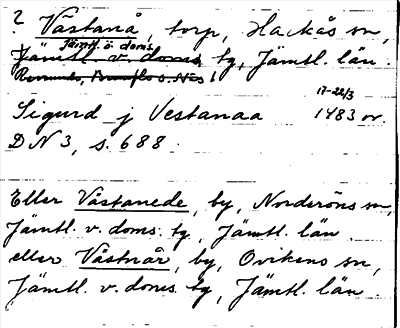 ? Västanå, torp, Hackås sn,
Jämtl. ö. doms.
Jämtl. v. doms. tg, Jämtl. län.
17-22/3
Sigurd j Vestanaa 1483 or.
DN 3, s. 688.
Eller Västanede, by, Norderöns sn,
Jämtl. v. doms. tg, Jämtl. län
eller Västnår, by, Ovikens sn,
Jämtl. v. doms. tg, Jämtl. län.